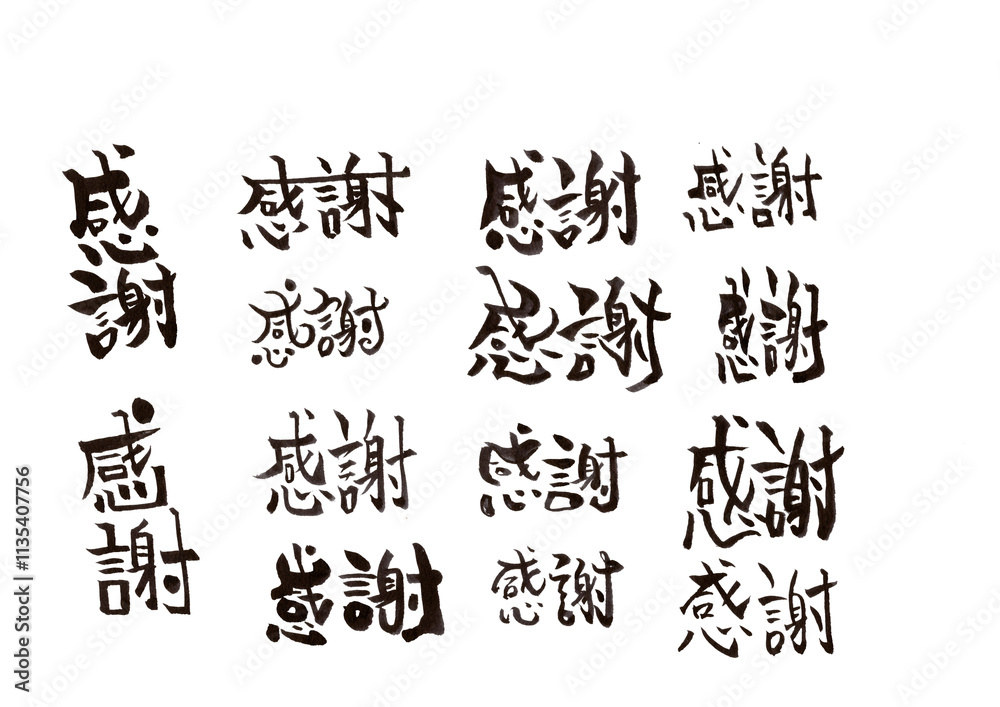 感謝
感謝
感謝
感謝
感謝
感謝
感謝
感謝
感謝
感謝
感謝
感謝
感謝
感謝
Adobe Stock | #1135407756